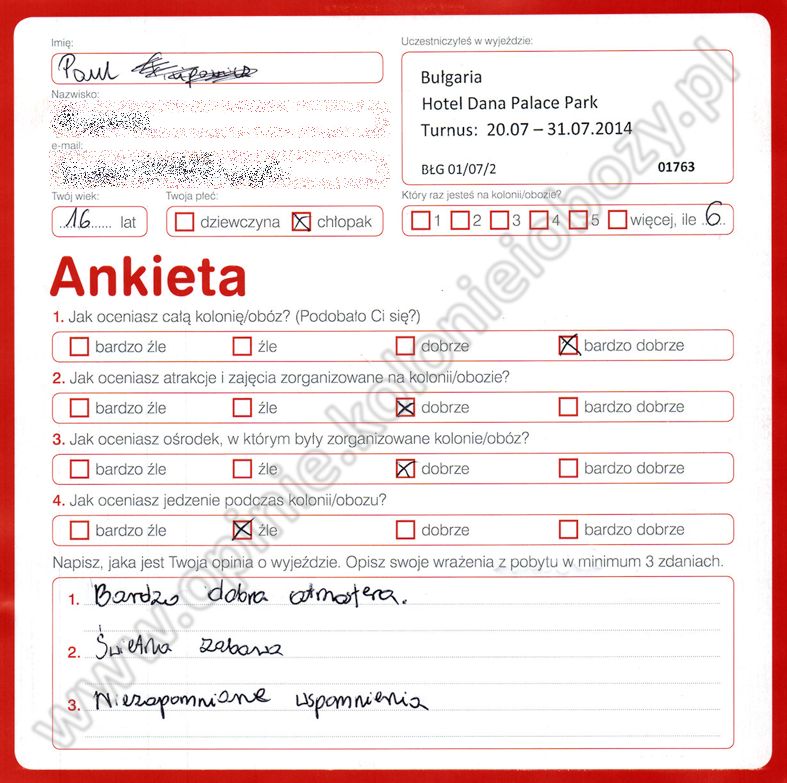 Imię:
Uczestniczyłeś w wyjeździe:
Paul
Bułgaria
Hotel Dana Palace Park
Turnus: 20.07 – 31.07.2014
BŁG 01/07/2 01763
Nazwisko:
e-mail:
Twój wiek: Twoja płeć: Który raz jesteś na kolonii/obozie?
16 lat dziewczyna chłopak 1 2 3 4 5 więcej, ile 6
Ankieta
1. Jak oceniasz całą kolonię/obóz? (Podobało Ci się?)
bardzo źle źle dobrze bardzo dobrze
2. Jak oceniasz atrakcje i zajęcia zorganizowane na kolonii/obozie?
bardzo źle źle dobrze bardzo dobrze
3. Jak oceniasz ośrodek, w którym były zorganizowane kolonie/obóz?
bardzo źle źle dobrze bardzo dobrze
4. Jak oceniasz jedzenie podczas kolonii/obozu?
bardzo źle źle dobrze bardzo dobrze
Napisz, jaka jest Twoja opinia o wyjeździe. Opisz swoje wrażenia z pobytu w minimum 3 zdaniach.
1. Bardzo dobra atmosfera.
2. Świetna zabawa
3. Niezapomniane wspomnienia
www.opinie.kolonieiobozy.pl